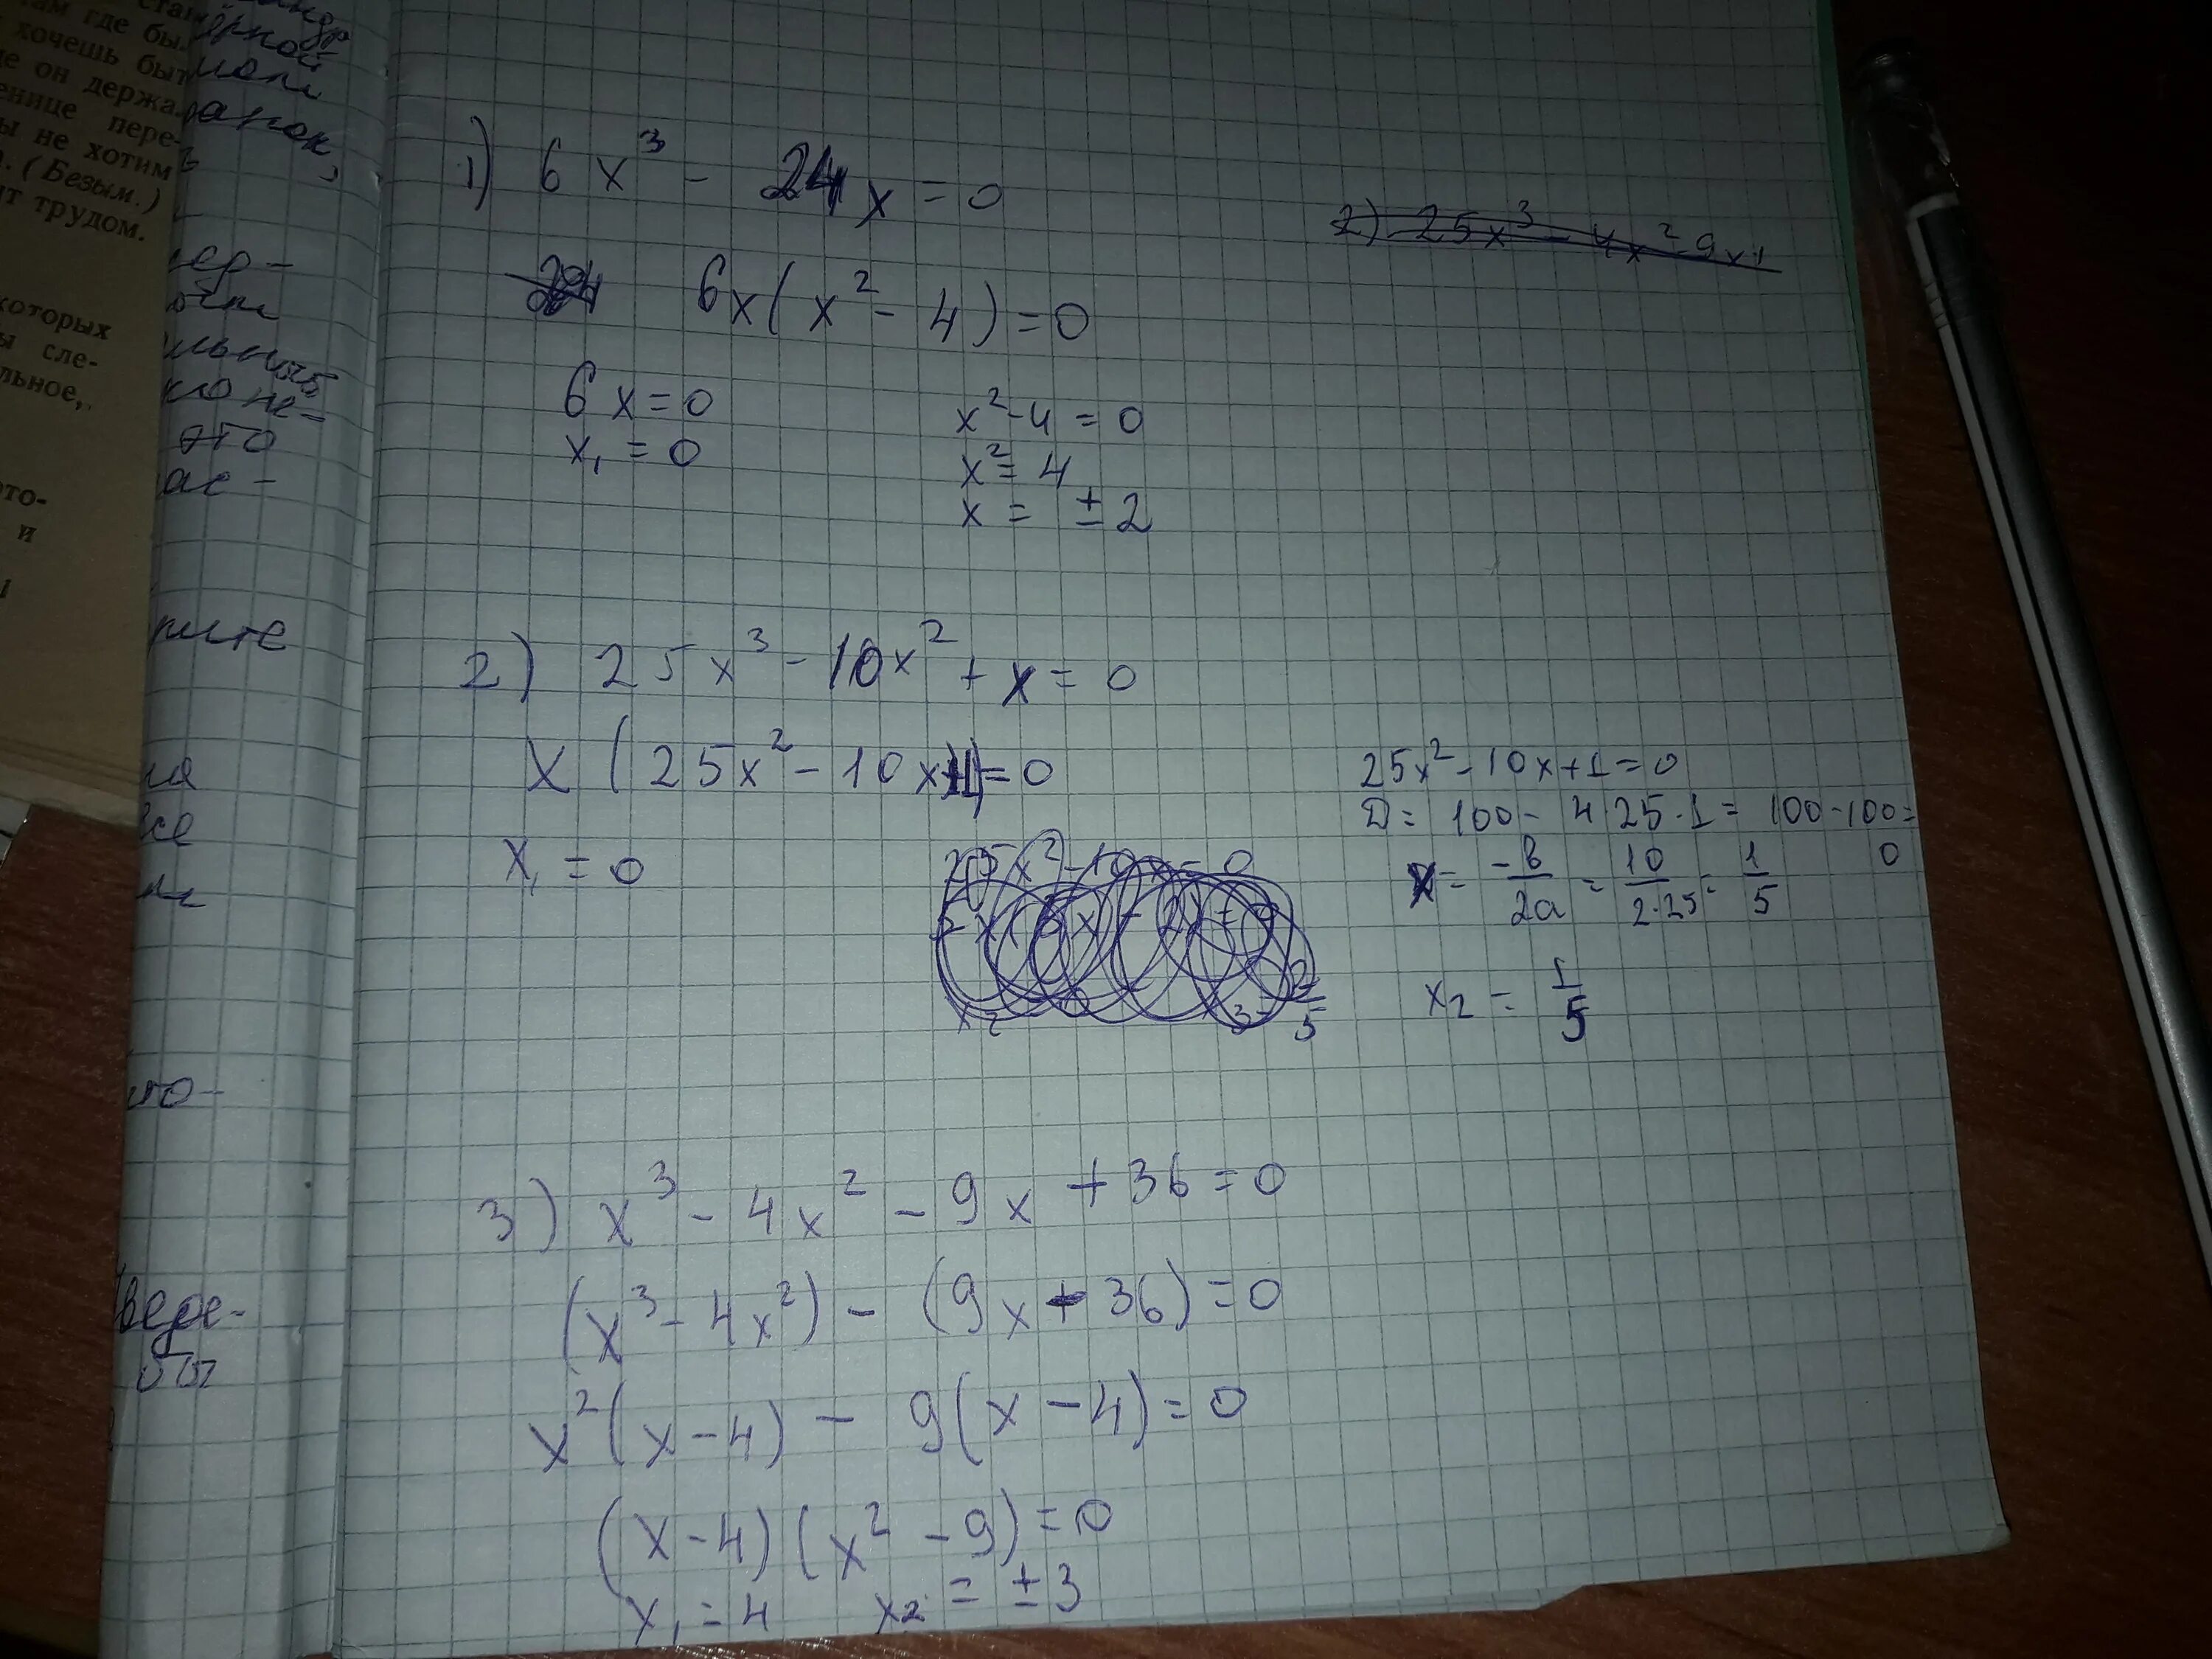 стан
там где бы
хочешь быт
де он держа
енице пере-
ы не хотим
(Безым.)
ит трудом.
которых
ы сле-
льное,
ото-
и
ер-
это
ас-
рите
ия
все
но-
веде-
1) 6x³ - 24x = 0
6x(x² - 4) = 0
6x = 0 x² - 4 = 0
x₁ = 0 x² = 4
x = ± 2
2) 25x³ - 4x² - 9x
2) 25x³ - 10x² + x = 0
x (25x² - 10x + 1) = 0
x₁ = 0
25x² - 10x + 1 = 0
D = 100 - 4·25·1 = 100 - 100 =
0
x = -b/2a = 10/2·25 = 1/5
x₂ = 1/5
3) x³ - 4x² - 9x + 36 = 0
(x³ - 4x²) - (9x - 36) = 0
x² (x - 4) - 9(x - 4) = 0
(x - 4) (x² - 9) = 0
x₁ = 4 x₂ = ± 3